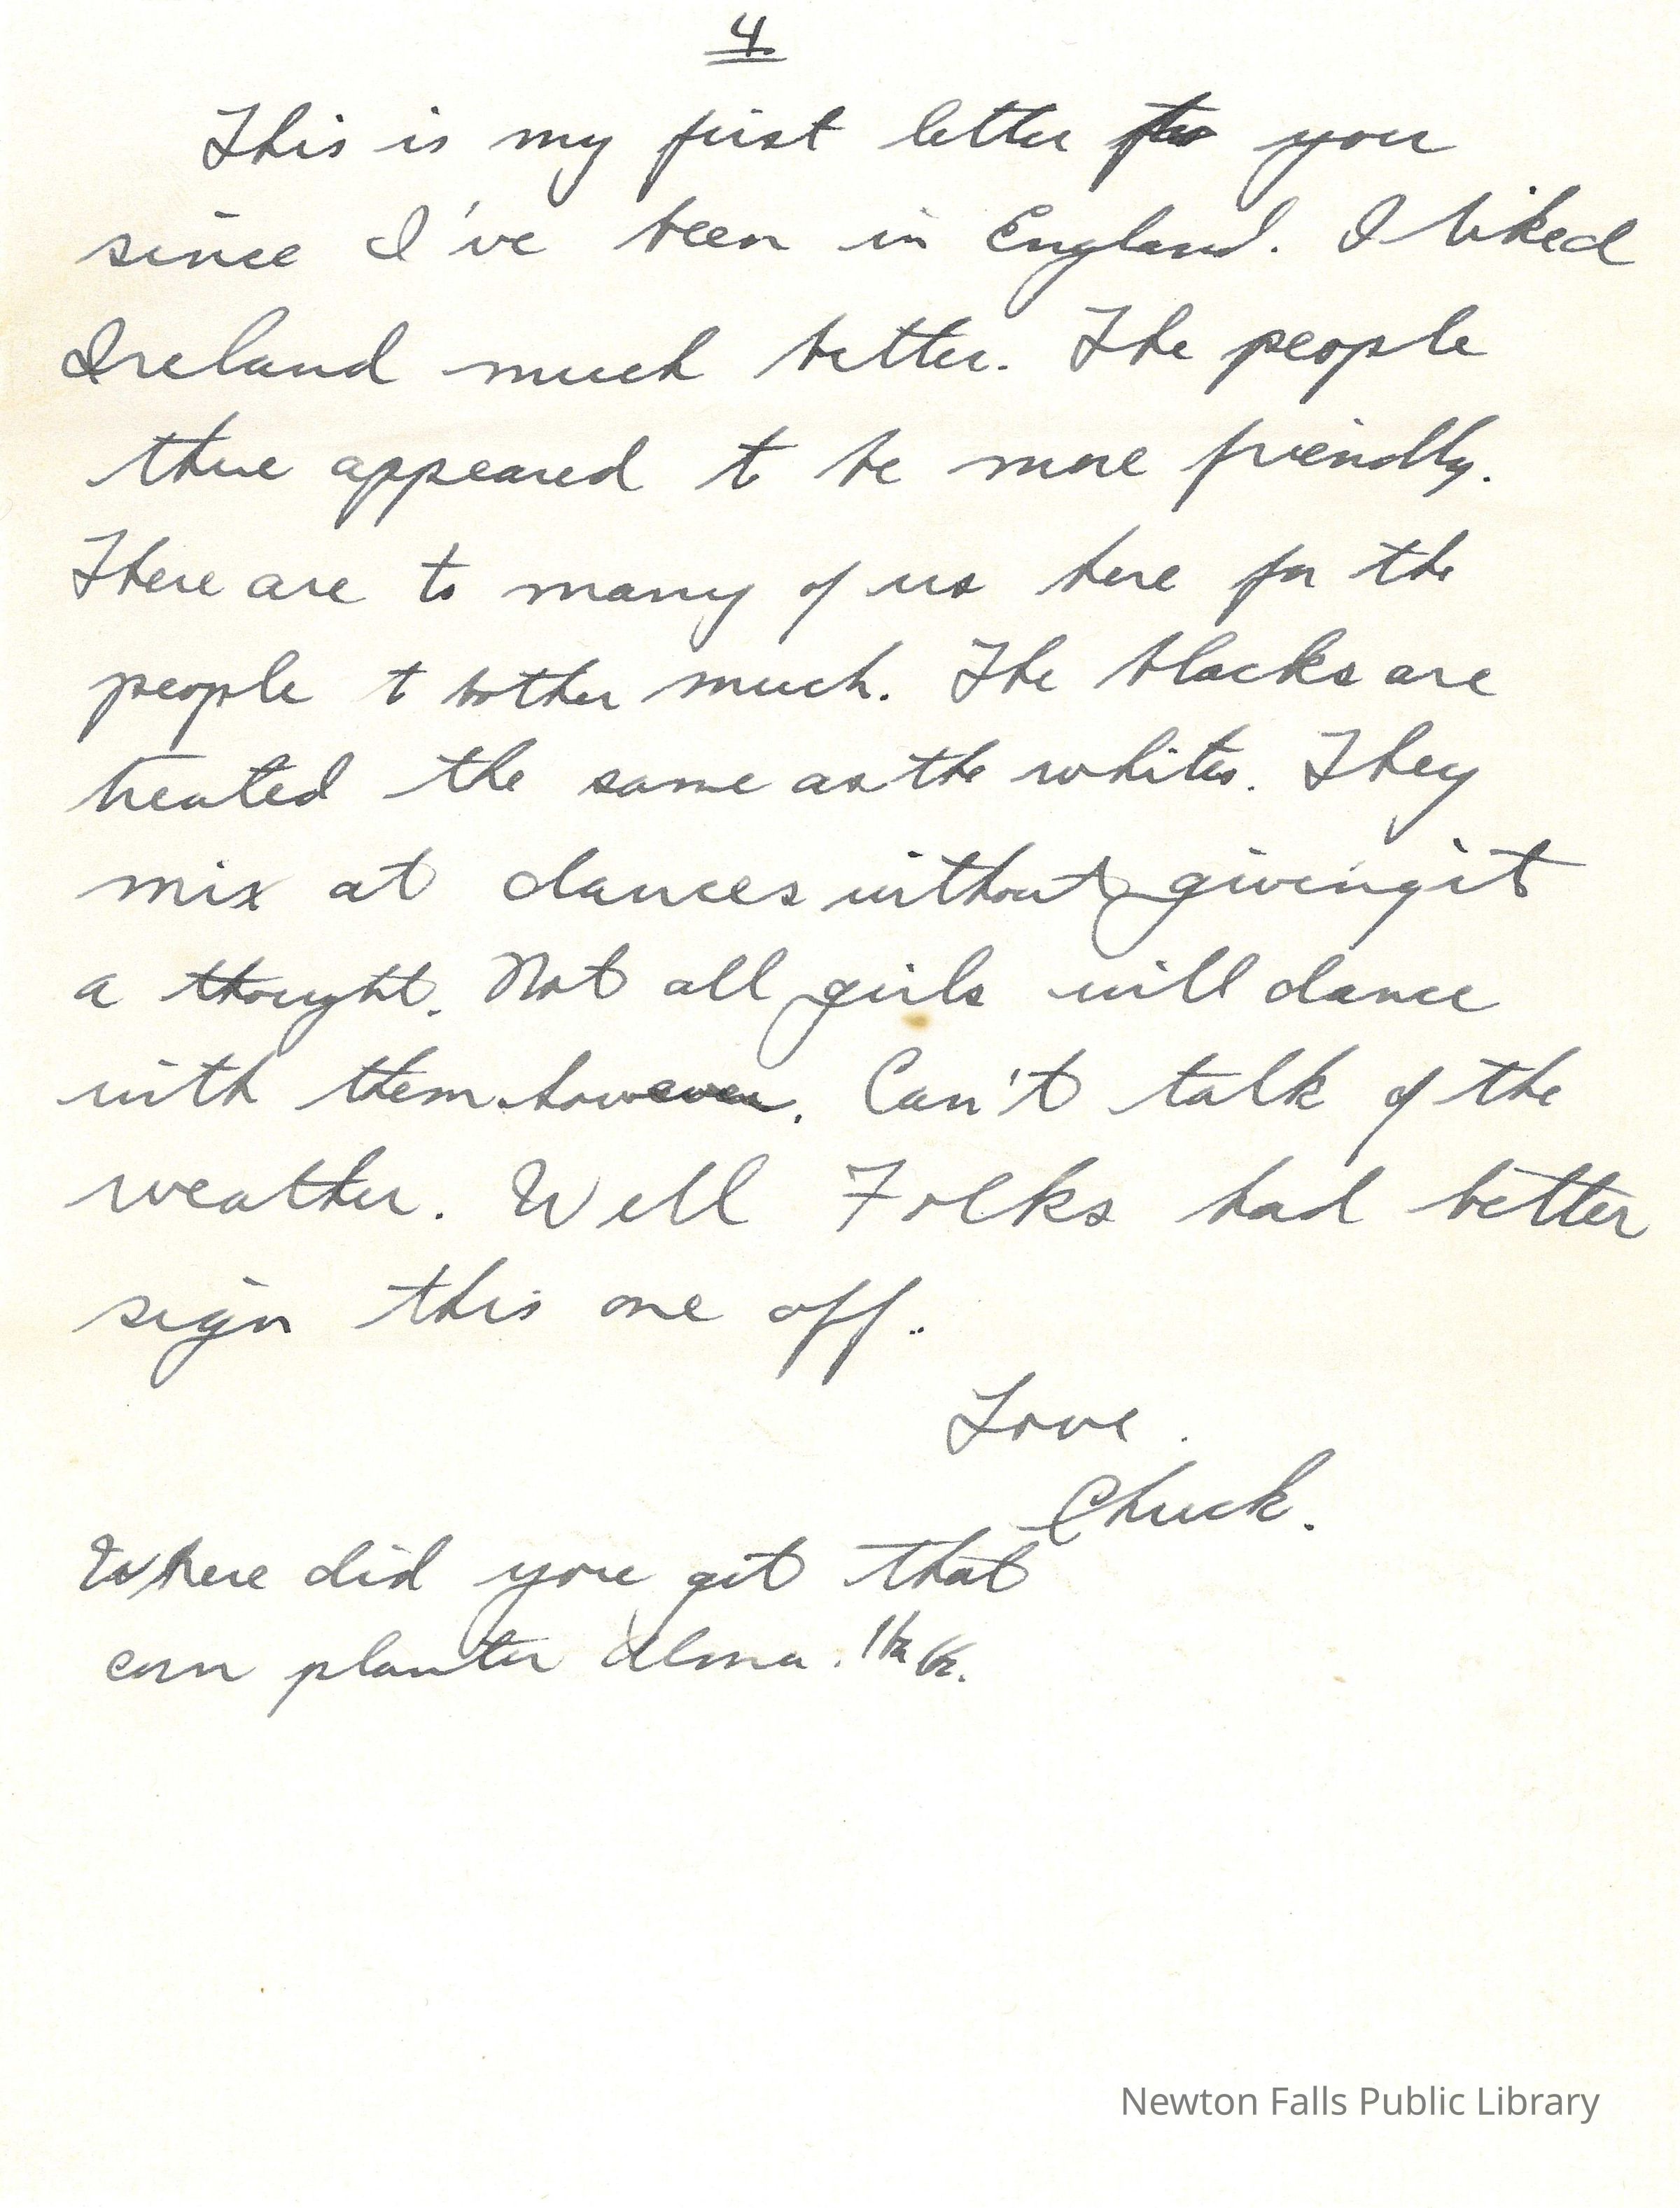 4
This is my first letter to you
since I've been in England. I liked
Ireland much better. The people
there appeared to be more friendly.
There are to many of us here for the
people t bother much. The blacks are
treated the same as the whites. They
mix at dances without giving it
a thought. Not all girls will dance
with them however. Can't talk of the
weather. Well Folks had better
sign this one off.
Love.
Chuck.
Where did you get that
corn planter Alma.
Newton Falls Public Library